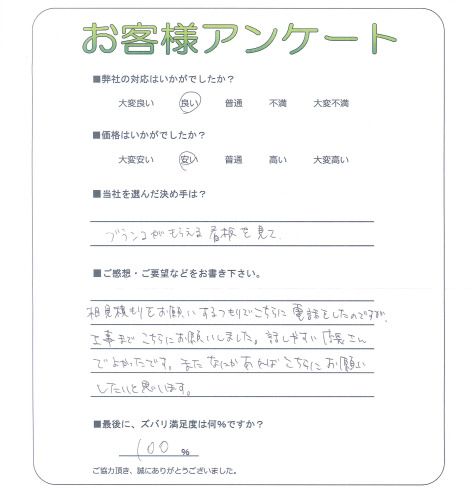 お客様アンケート
■弊社の対応はいかがでしたか？
大変良い 良い 普通 不満 大変不満
■価格はいかがでしたか？
大変安い 安い 普通 高い 大変高い
■当社を選んだ決め手は？
ブランコがもらえる看板を見て、
■ご感想・ご要望などをお書き下さい。
相見積もりをお願いするつもりでこちらに電話をしたのですが、
工事までこちらにお願いしました。話しやすい店長さん
でよかったです。またなにかあればこちらにお願い
したいと思います。
■最後に、ズバリ満足度は何％ですか？
100 %
ご協力頂き、誠にありがとうございました。